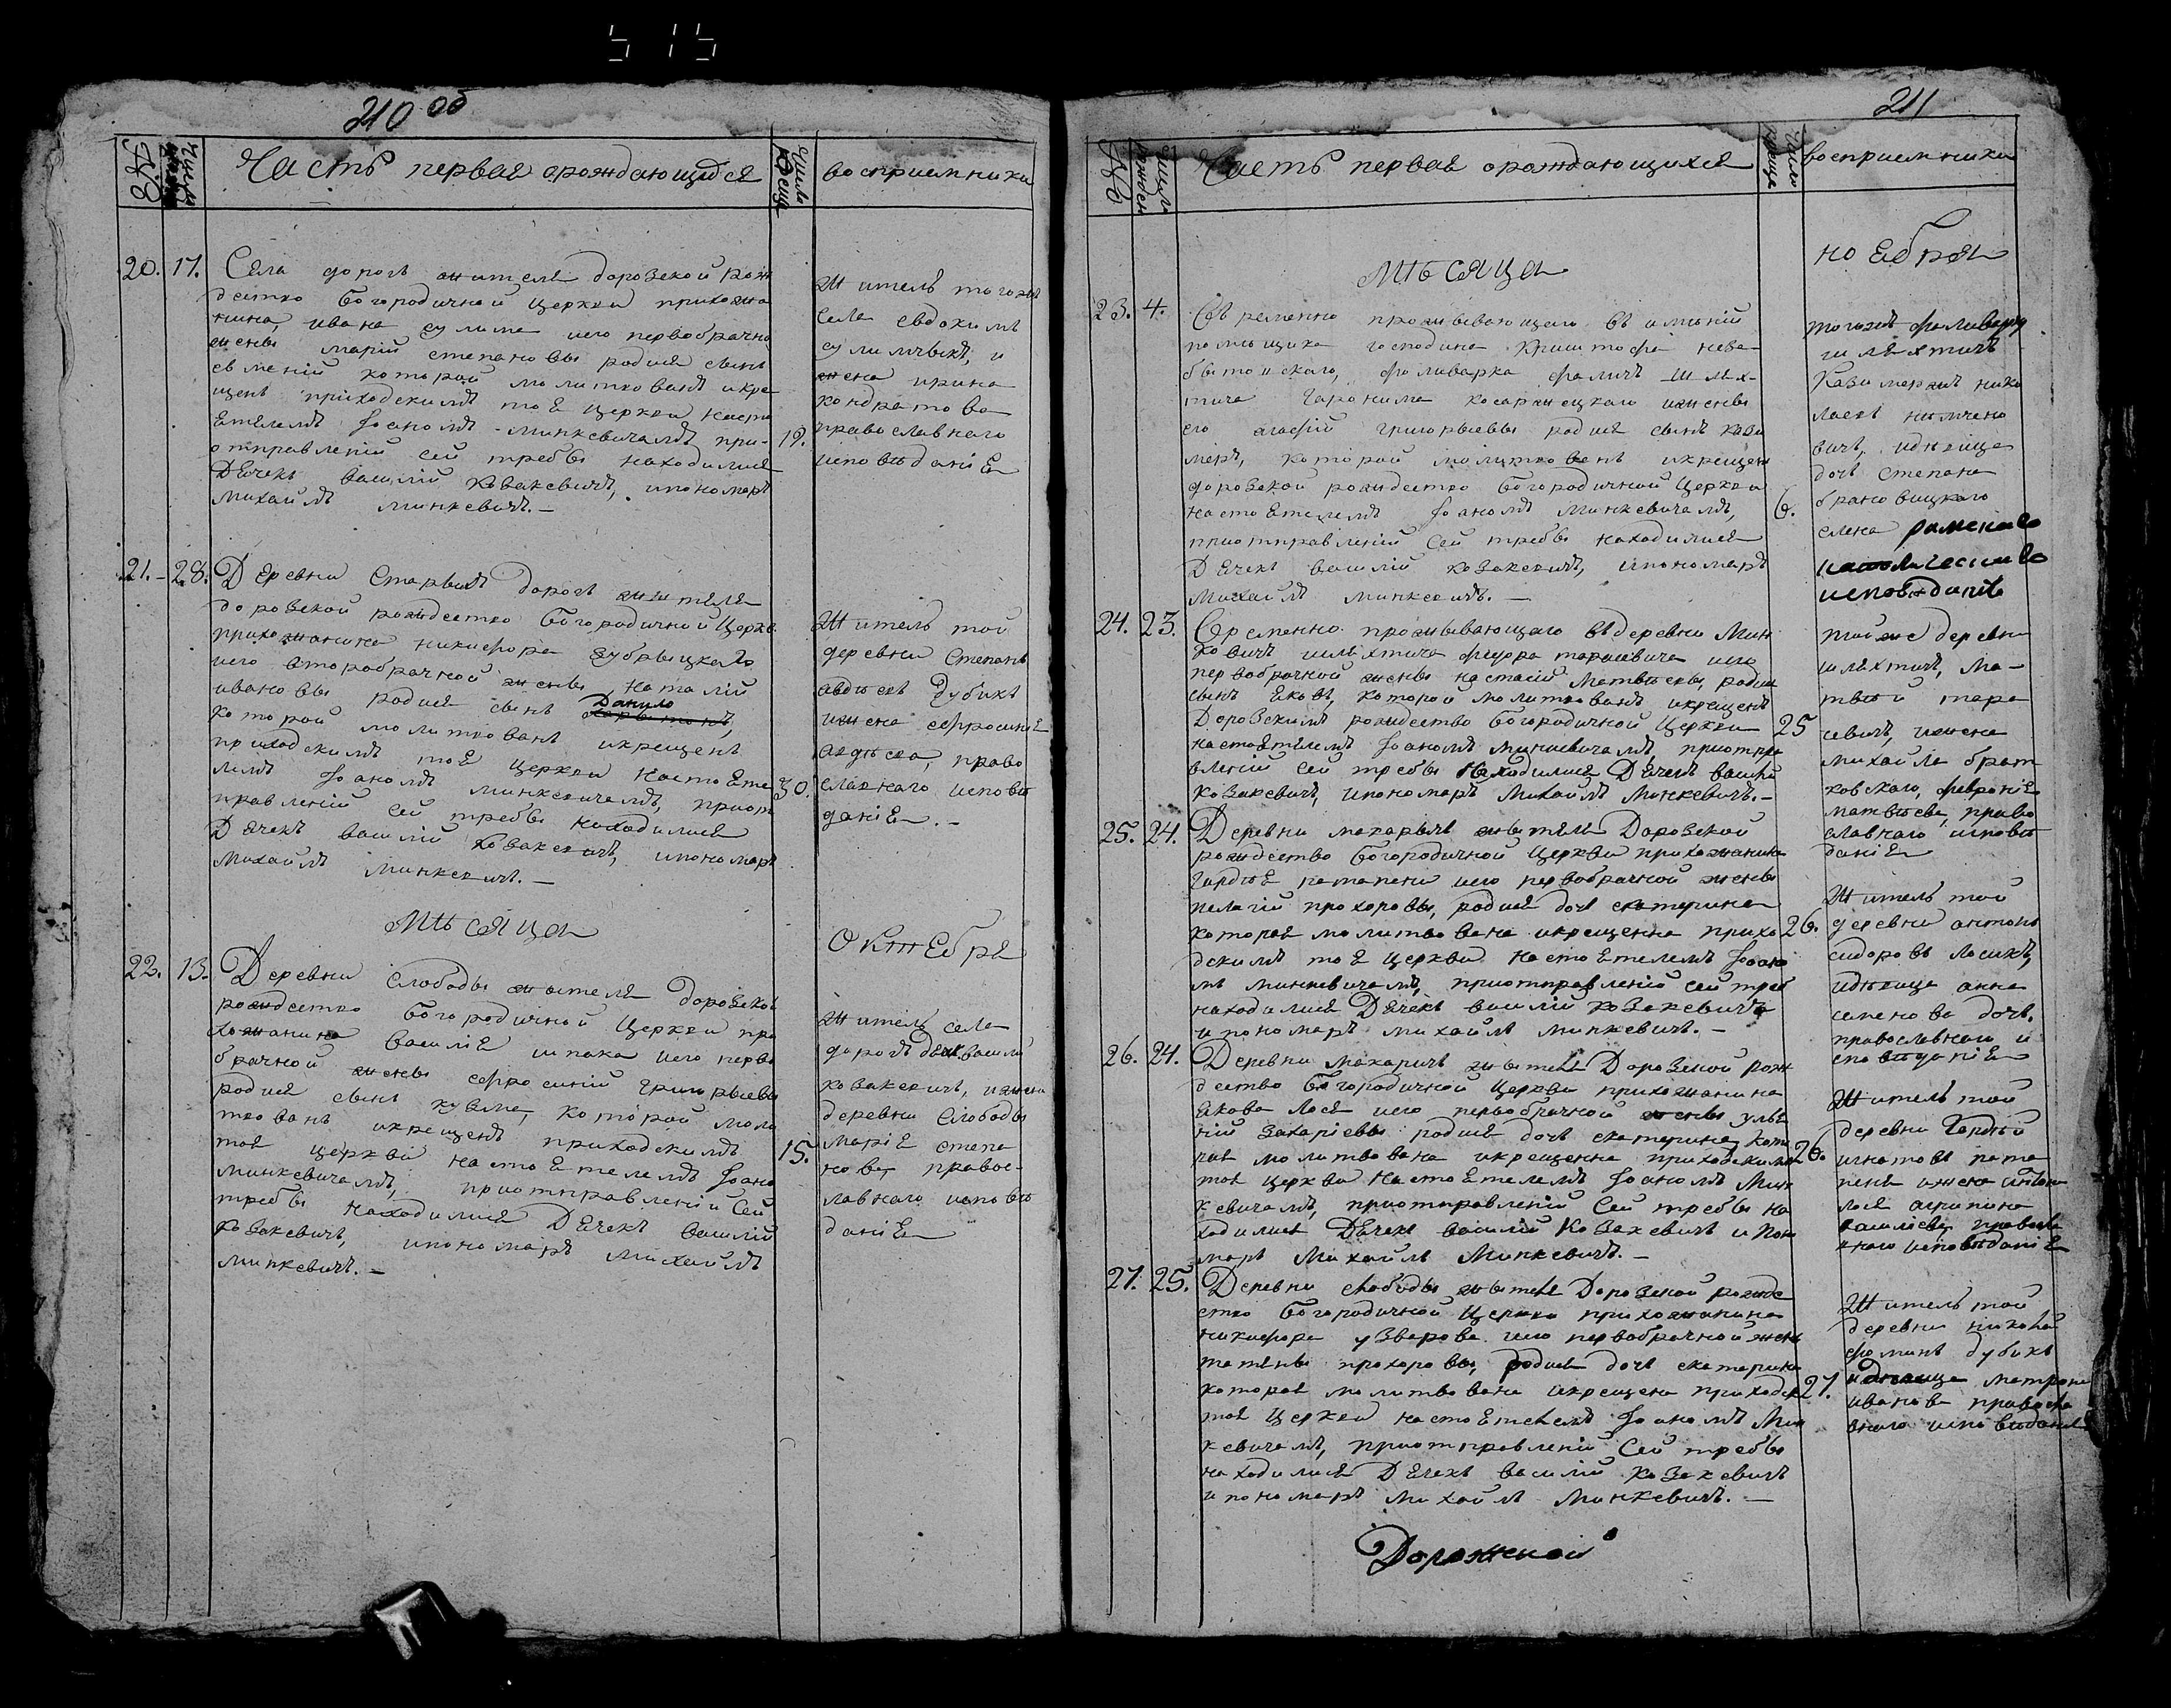 515
210 об
№
Число рожден
Часть первая орождающихся
Число креще
восприемники
20. 17.
Села дорогъ жителя даровской рож
дество богородичной церкви прихожа
нина, ивана сулима иего первобрачно
жены маріи степановы родися сынъ
евменій которой молитвованъ икре
щенъ приходскимъ тоя церкви насто
ятелемъ Іоаномъ минкевичамъ при-
отправленіи сей требы находилися
Дячекъ василій козакевичъ, ипономарь
михаилъ минкевичъ. -
19.
житель тогожъ
села евдокимъ
сулимчыкъ, и
жена ирина
кондратова
православнаго
исповѣданія
21. - 28.
Деревни Старыхъ дорогъ жителя
доровской рождество богородичной Церкв
прихожанина никифора зубрыцкаго
иего второбрачной жены наталіи
ивановы родися сынъ Данило
которой молитвованъ икрещенъ
приходскимъ тоя церкви настояте
лемъ Іоаномъ минкевичамъ, приот
правленіи сей требы находилися
Дячекъ василій козакевичъ, ипономарь
михаилъ минкевичъ. -
30.
житель той
деревни степанъ
авдѣевъ дубикъ
ижена ефросинія
авдѣева, право
славнаго исповѣ
данія. -
Мѣсяца
октября
22. 13.
Деревни слободы жителя доровской
рождество богородичной Церкви при
хожанина василія шпака иего перво
брачной жены ефросиніи григорьевы
родися сынъ кузма, которой моли
твованъ икрещенъ приходскимъ
тоя церкви настоятелемъ Іоано
минкевичамъ, приотправленіи сей
требы находилися Дячекъ василій
козакевичъ, ипономарь михаилъ
минкевичъ. -
15.
житель села
дорогъ дяк василій
козакевичъ, ижена
деревни слободы
марія степа
нова, правос-
лавнаго исповѣ
данія
211
№
Число рожден
Часть первая орождающихся
Число креще
восприемники
Мѣсяца
ноября
23. 4.
Временно проживающаго въ имѣніи
помѣщика господина криштофа неза-
бытоискаго, фолварка фаличъ шлях-
тича Гаронима косаржецкаго ижены
его агафіи григорьевы родися сынъ кази
меръ, которой молитвованъ икрещен
доровской рождество богородичной Церкви
настоятелемъ Іоаномъ Минкевичамъ,
приотправленіи сей требы находилися
Дячекъ василій козакевичъ, ипономарь
михаилъ минкевичъ. -
6.
тогожъ фолварку
шляхтичъ
казимержъ нико
лаевъ
вичъ, идѣвица
дочь степана
брановицкаго
елена римскаго
католическаго
исповѣданія
24. 23.
Временно проживающаго въдеревни Мин
ковичъ шляхтича федора тарасевича иего
первобрачной жены настасіи матвѣевы, родися
сынъ яковъ, которой молитвованъ икрещенъ
Доровскимъ рождество богородичной Церкви
настоятелемъ Іоаномъ минкевичамъ, приотпра
вленіи сей требы находилися Дячекъ василій
козакевичъ, ипономарь михаилъ минкевичъ. -
25
тойже деревни
шляхтичъ, ма-
твѣй тара
севичъ, ижена
михайла брат
ковскаго, февронія
матвѣева, право
славнаго исповѣ
данія
25. 24.
Деревни макарычъ жытеля Даровской
рождество богородичной Церкви прихожанина
гардѣя патапени иего первобрачной жены
пелагіи прохоровы, родися дочь екатерина
которая молитвована икрещенна прихо
дскимъ тоя церкви настоятелемъ Іоано
мъ минкевичамъ, приотправленіи сей треб
находилися Дячекъ василій козакевичъ
ипономарь михаилъ минкевичъ. -
26.
житель той
деревни антонъ
сидоровъ ласикъ,
идѣвица анна
семенова дочь,
православнаго и
сповѣданія
26. 24.
Деревни макаричъ жытеля Доровской рож
дество богородичной Церкви прихожанина
якова лося иего первобрачной жены улья
ніи захаріевы родися дочь екатерина, кото
рая молитвована икрещенна приходскимъ
тоя церкви настоятелемъ Іоаномъ Мин
кевичамъ, приотправленіи сей требы на
ходилися Дячекъ василій козакевичъ ипоно
марь михаилъ минкевичъ. -
26.
житель той
деревни Гардѣй
игнатовъ пата
пеня ижена антона
лося агрипина
василіева православ
наго исповѣданія
27. 25.
Деревни слободы жытеля Доровской рожде
ство богородичной Церкви прихожанина
никифора узварова иего первобрачной жены
татяны прохоровы, родися дочь екатерина
которая молитвована икрещена приходски
тоя Церкви настоятелемъ Іоаномъ Мин
кевичамъ, приотправленіи Сей требы
находилися Дячекъ василій козакевичъ
ипономарь михаилъ минкевичъ. -
27.
житель той
деревни николай
фоминъ дубикъ
идѣвица матрона
иванова правосла
внаго исповѣданія
Дорожской